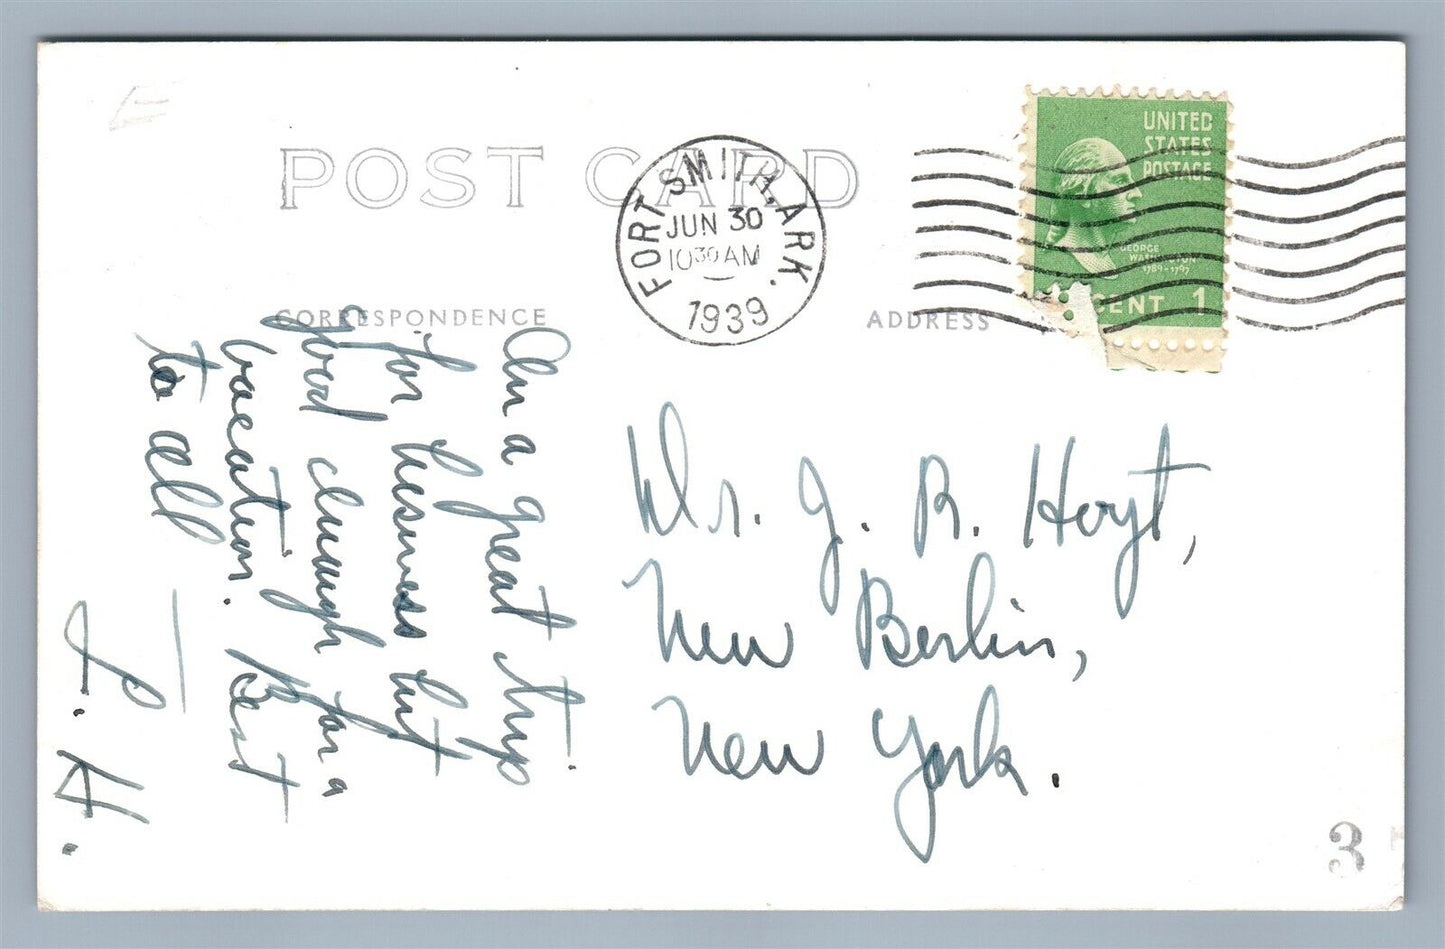 POST CARD
FORT SMITH, ARK.
JUN 30
10 30 AM
1939
UNITED
STATES
POSTAGE
GEORGE
WASHINGTON
1789-1797
CENT 1
CORRESPONDENCE
ADDRESS
On a great trip
for business but
good enough for a
vacation. Best
to all
J. H.
Dr. J. R. Hoyt,
New Berlin,
New York.
3